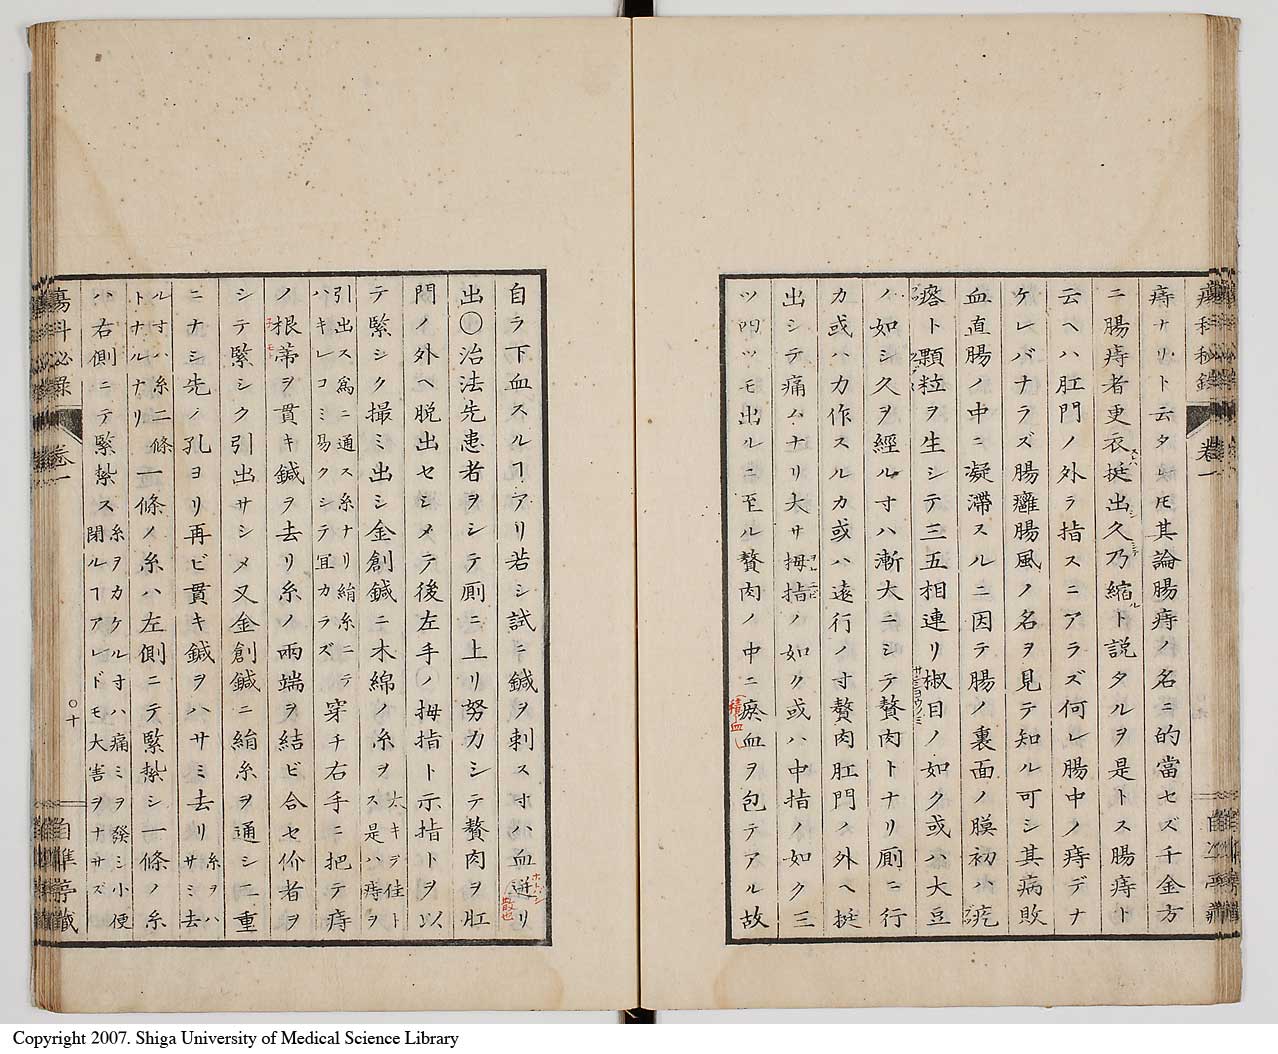 瘍科秘録 卷一
痔ナリト云タレ𪜈其論腸痔ノ名ニ的當セズ千金方
ニ腸痔者更衣挺出久乃縮ト説タルヲ是トス腸痔ト
云ヘハ肛門ノ外ヲ指スニアラズ何レ腸中ノ痔デナ
ケレバナラズ腸癰腸風ノ名ヲ見テ知ル可シ其病敗
血直腸ノ中ニ凝滞スルニ因テ腸ノ裏面ノ膜初ハ疙
瘩ト顆粒ヲ生シテ三五相連リ椒目ノ如ク或ハ大豆
ノ如シ久ヲ經ル寸ハ漸大ニシテ贅肉トナリ厠ニ行
カ或ハ力作スルカ或ハ遠行ノ寸贅肉肛門ノ外ヘ挺
出シテ痛ムナリ大サ拇指ノ如ク或ハ中指ノ如ク三
ツ四ツモ出ルニ至ル贅肉ノ中ニ瘀血ヲ包テアル故
(積血)
自ラ下血スルヿアリ若シ試ニ鍼ヲ刺ス寸ハ血迸リ
ホトバシ
散也
出〇治法先患者ヲシテ厠ニ上リ努力シテ贅肉ヲ肛
門ノ外ヘ脱出セシメテ後左手ノ拇指ト示指トヲ以
テ緊シク撮ミ出シ金創鍼ニ木綿ノ糸ヲ太キヲ佳トス是ハ痔ヲ
引出ス爲ニ通ス糸ナリ絹糸ニテハキレコミ易クシテ宜カラズ穿チ右手ニ把テ痔
ノ根蒂ヲ貫キ鍼ヲ去リ糸ノ両端ヲ結ビ合セ价者ヲ
シテ緊シク引出サシメ又金創鍼ニ絹糸ヲ通シ二重
ニナシ先ノ孔ヨリ再ビ貫キ鍼ヲハサミ去リ糸ヲハサミ去
ル寸ハ糸二條トナルナリ一條ノ糸ハ左側ニテ緊紮シ一條ノ糸
ハ右側ニテ緊紮ス糸ヲカケル寸ハ痛ミヲ發シ小便閉ルヿアレドモ大害ヲナサズ
瘍科秘録 卷一 〇十 自準亭藏
Copyright 2007. Shiga University of Medical Science Library